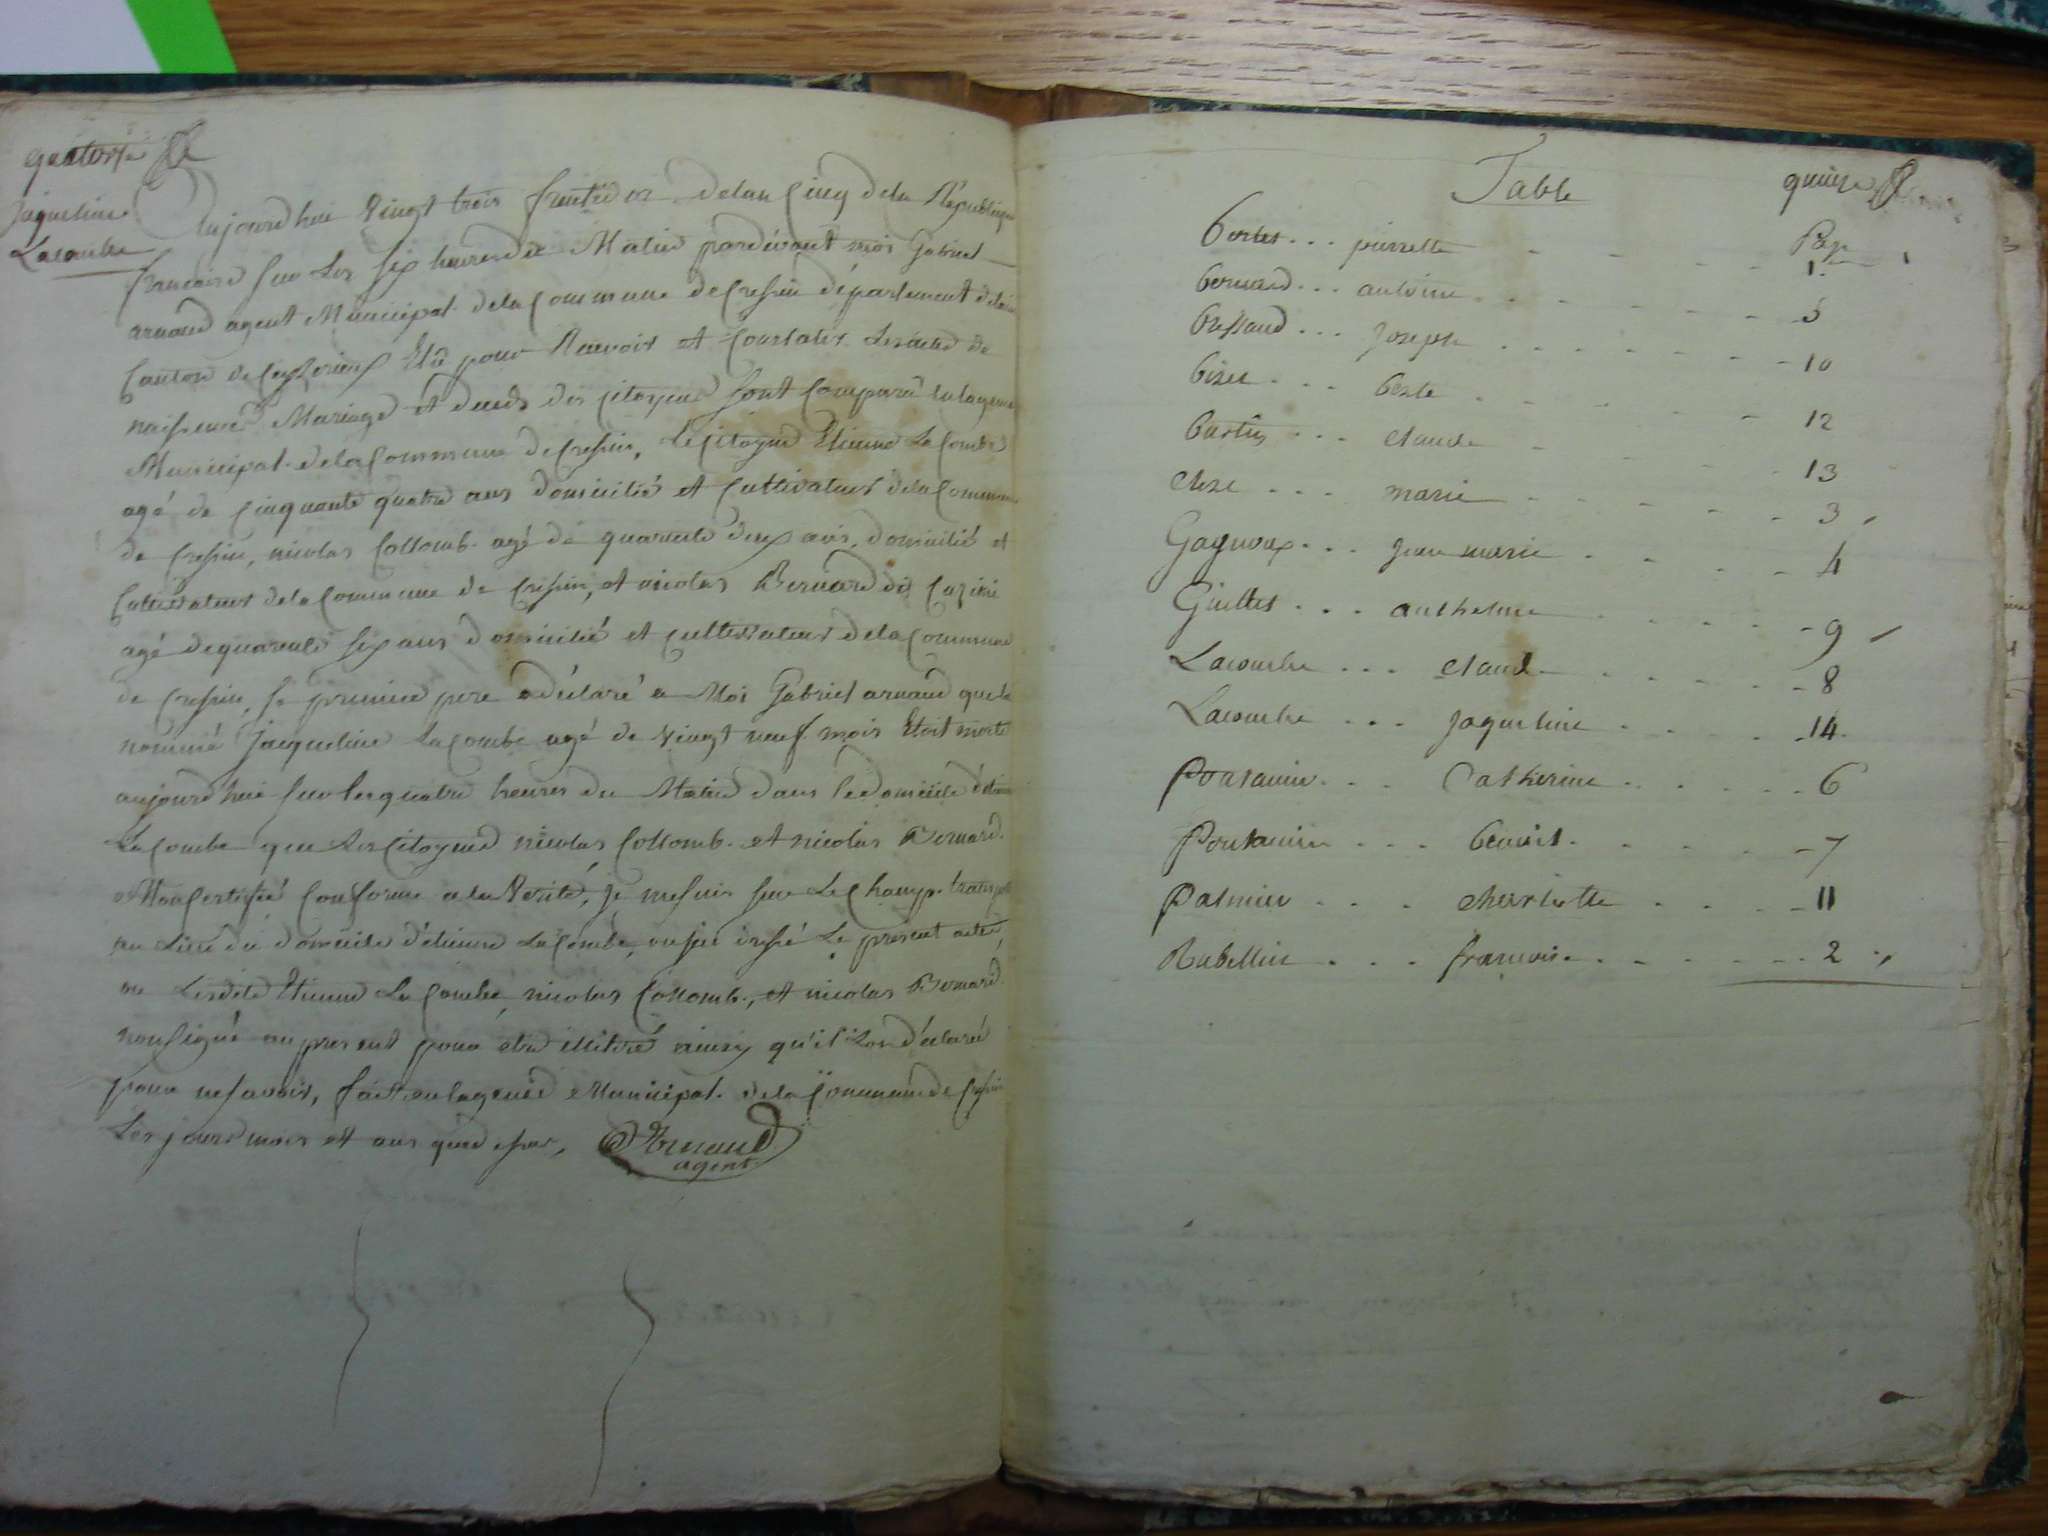 quatorze
Jaqueline
Lacombe
aujourdhui Vingt trois fructidor delan Cinq dela Republique
francaise sur Les six heures de Matin pardevant moi Gabriel
arnaud agent Municipal dela Commune de Cressin département delain
Canton de Ceyzerieux Elû pour Recevoir et Constater Les actes de
naissance Mariage et deces des citoyens sont Comparû en lagence
Municipal dela Commune de Cressin, Le Citoyen Etienne La Combe
agé de Cinquante quatre ans domicilié et Cultivateur dela Commune
de Cressin, nicolas Collomb agé de quarente deux ans, domicilié et
Cultivateur dela Commune de Cressin, et nicolas Bernard dit
agé de quarente six ans domicilié et cultivateur dela Commune
de Cressin, le premier pere a déclaré a Moi Gabriel arnaud que la
nommé Jacqueline La Combe agé de Vingt neuf mois Etoit morte
aujourdhui sur les quatre heures du Matin dans le domicile
La Combe que Les Citoyens nicolas Collomb et nicolas Bernard
Mon Certifié Conforme a la Verité, Je me suis sur Le Champ
au Lieu du domicile d'étienne La Combe, ou jai dressé Le present acte
Etienne La Combe, nicolas Collomb, et nicolas Bernard
non signé au present pour etre illitré ainsy qu'il Lon déclaré
pour ne savoir, fait en lagence Municipal dela Commune de Cressin
Les jours mois et ans que
Arnaud
agent
Table
quinze
Page
Bertet pierrette 1
bernard antoine 5
Bressaud Joseph 10
claude 13
marie 3
Gagnoux jean marie 4
Guillet anthelme 9
Lacombe claude 8
Lacombe Jaqueline 14
Pontanier Catherine 6
Pontanier benoit 7
Palmier charlotte 11
Rubellin francoise 2